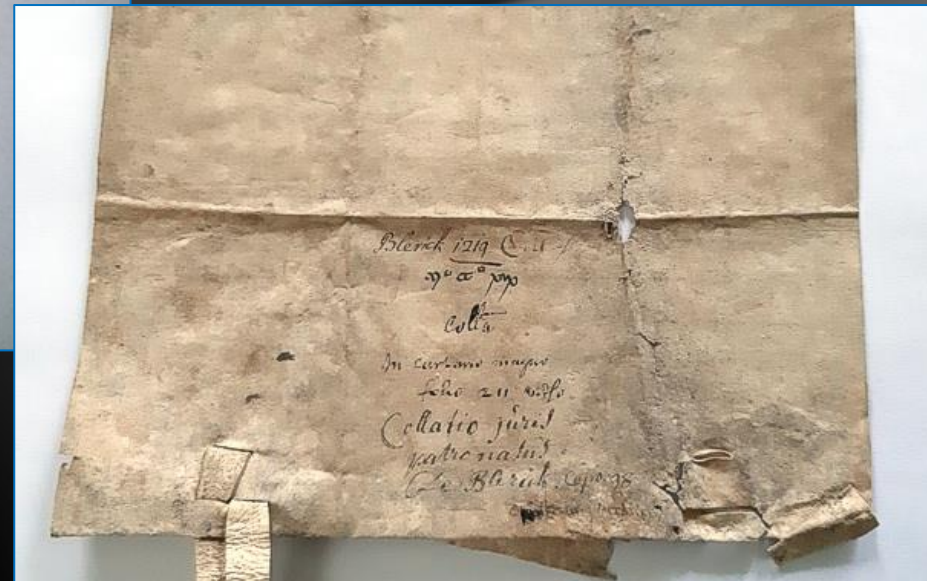 Blerick 1219
Colla
In cartario magno
folio 211 verso
Collatio juris
patronatus
De Blerick Cap. 98